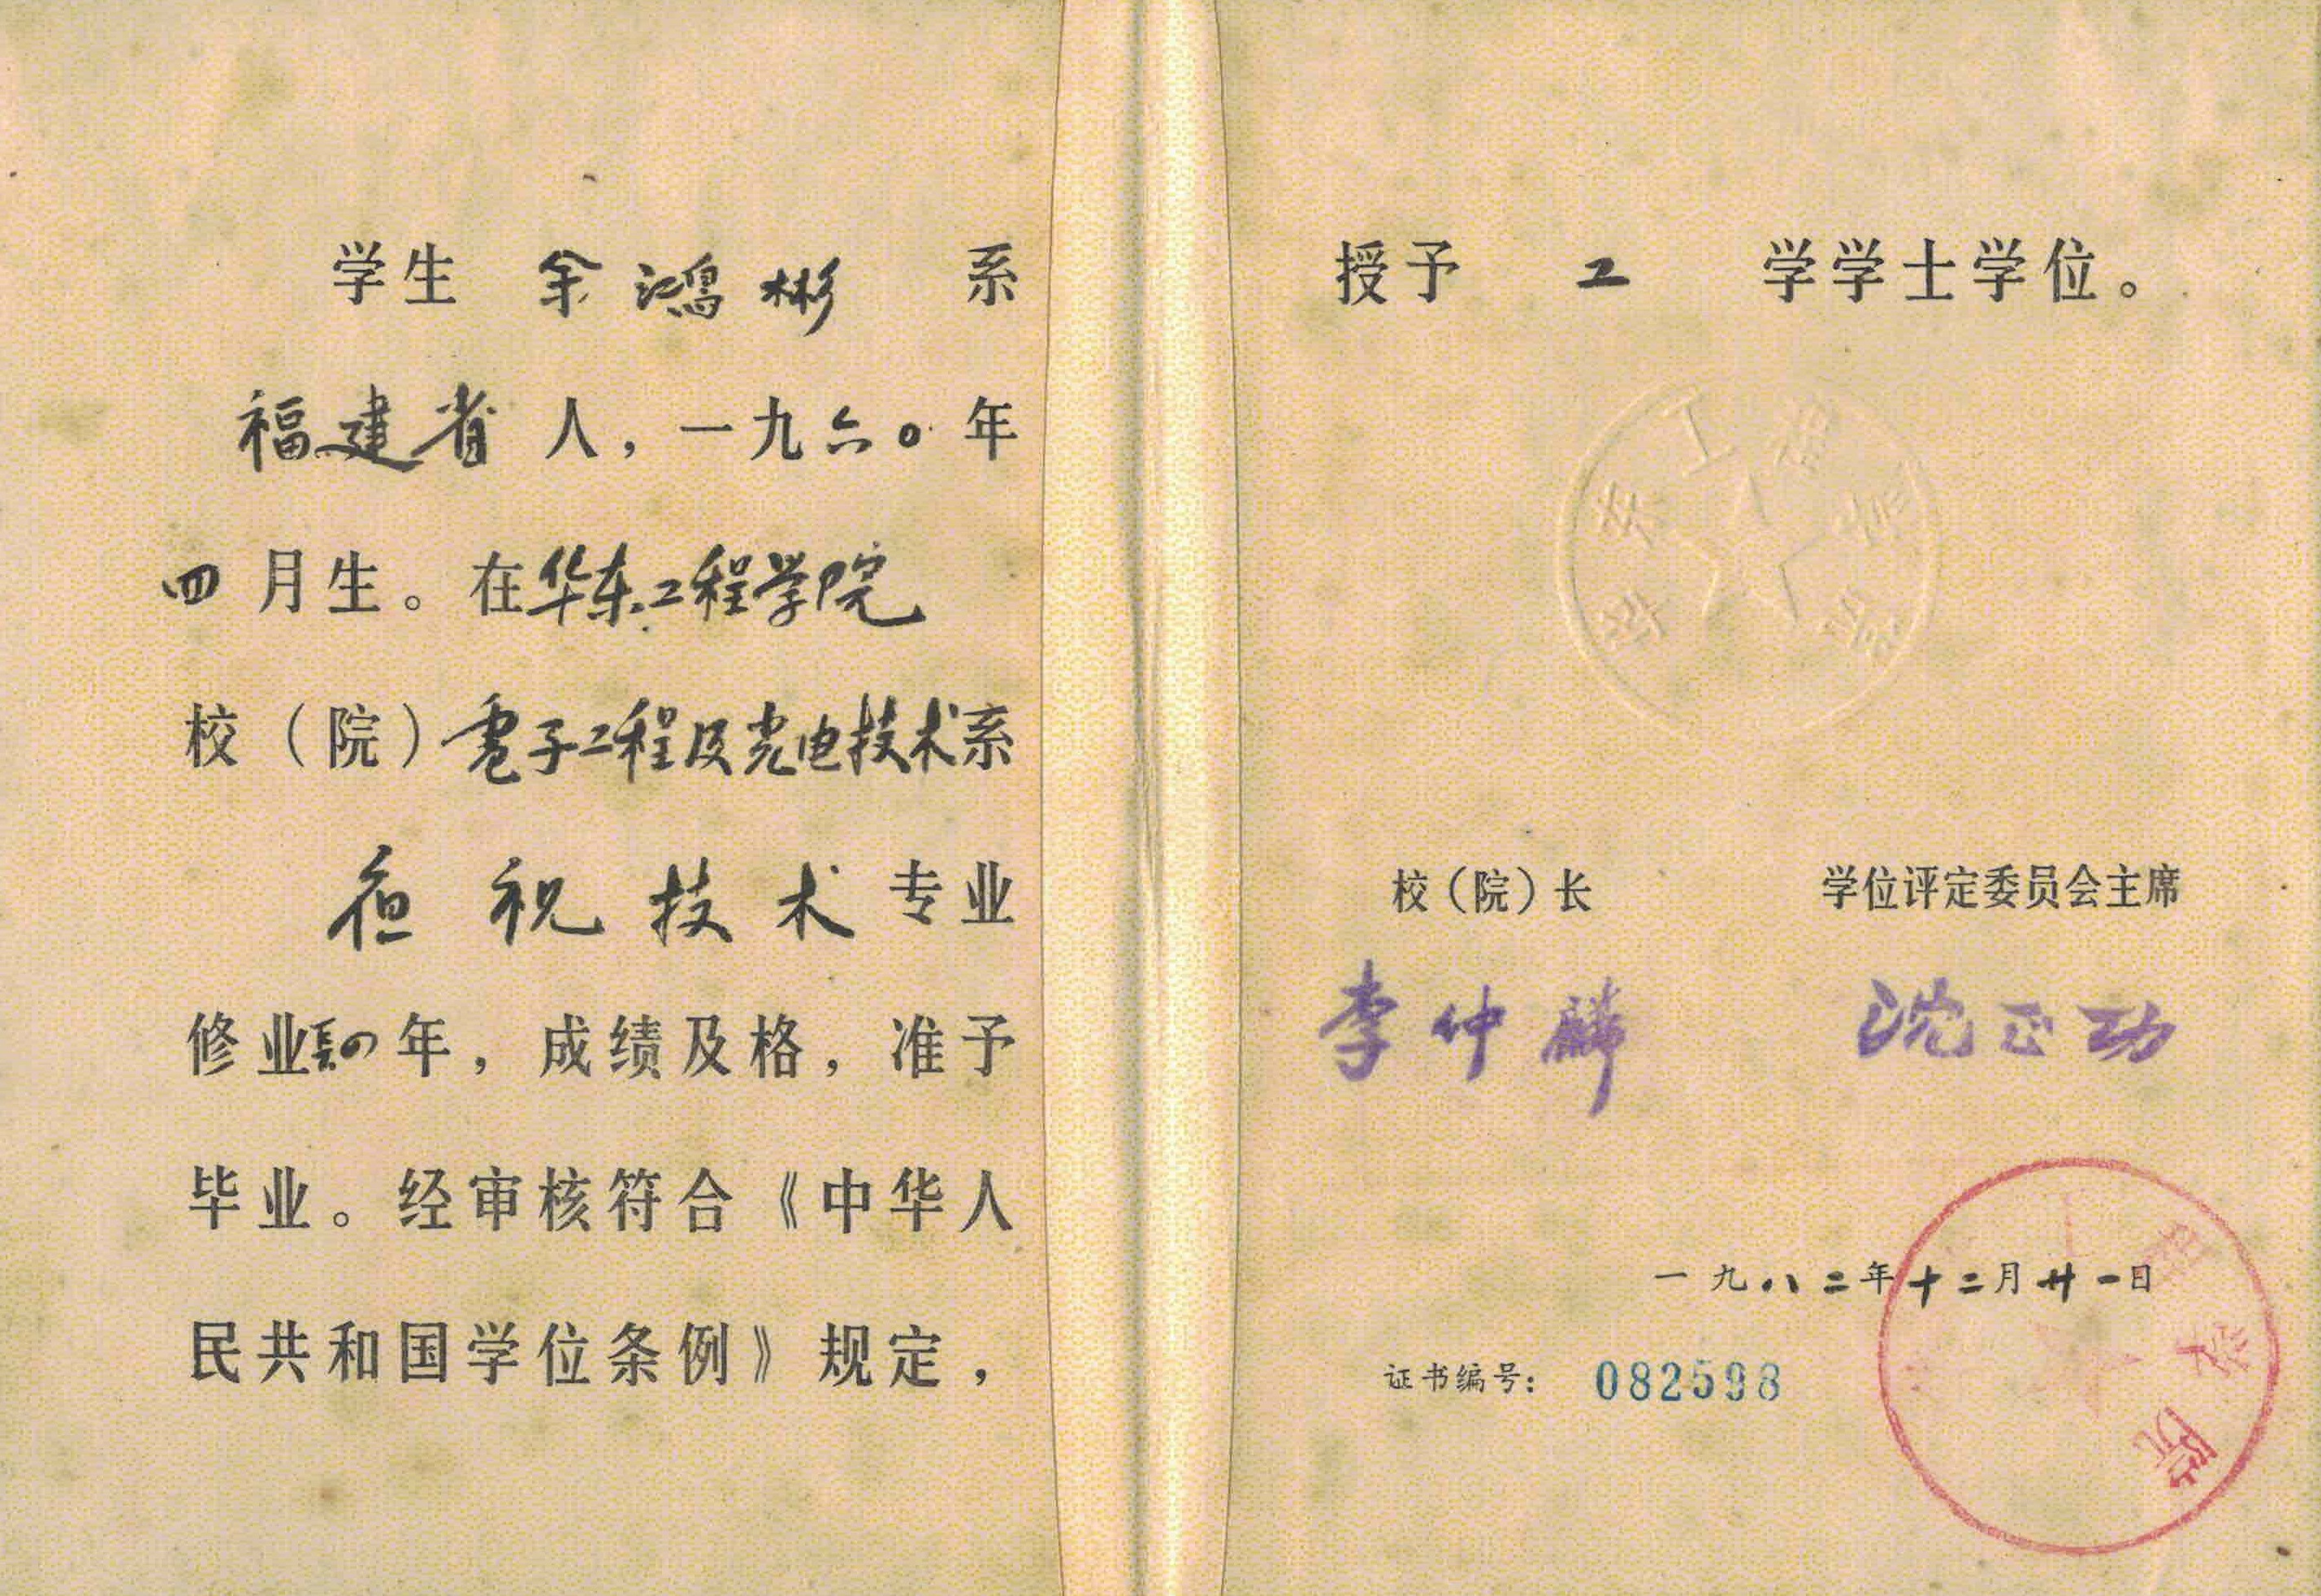 学生 余鸿彬 系
福建省人，一九六〇年
四月生。在华东工程学院
校（院）电子工程及光电技术系
技术专业
修业 年，成绩及格，准予
毕业。经审核符合《中华人
民共和国学位条例》规定，
授予 工 学学士学位。
校（院）长 学位评定委员会主席
李仲麟 沈正功
一九八二年十二月廿一日
证书编号：082598
学院